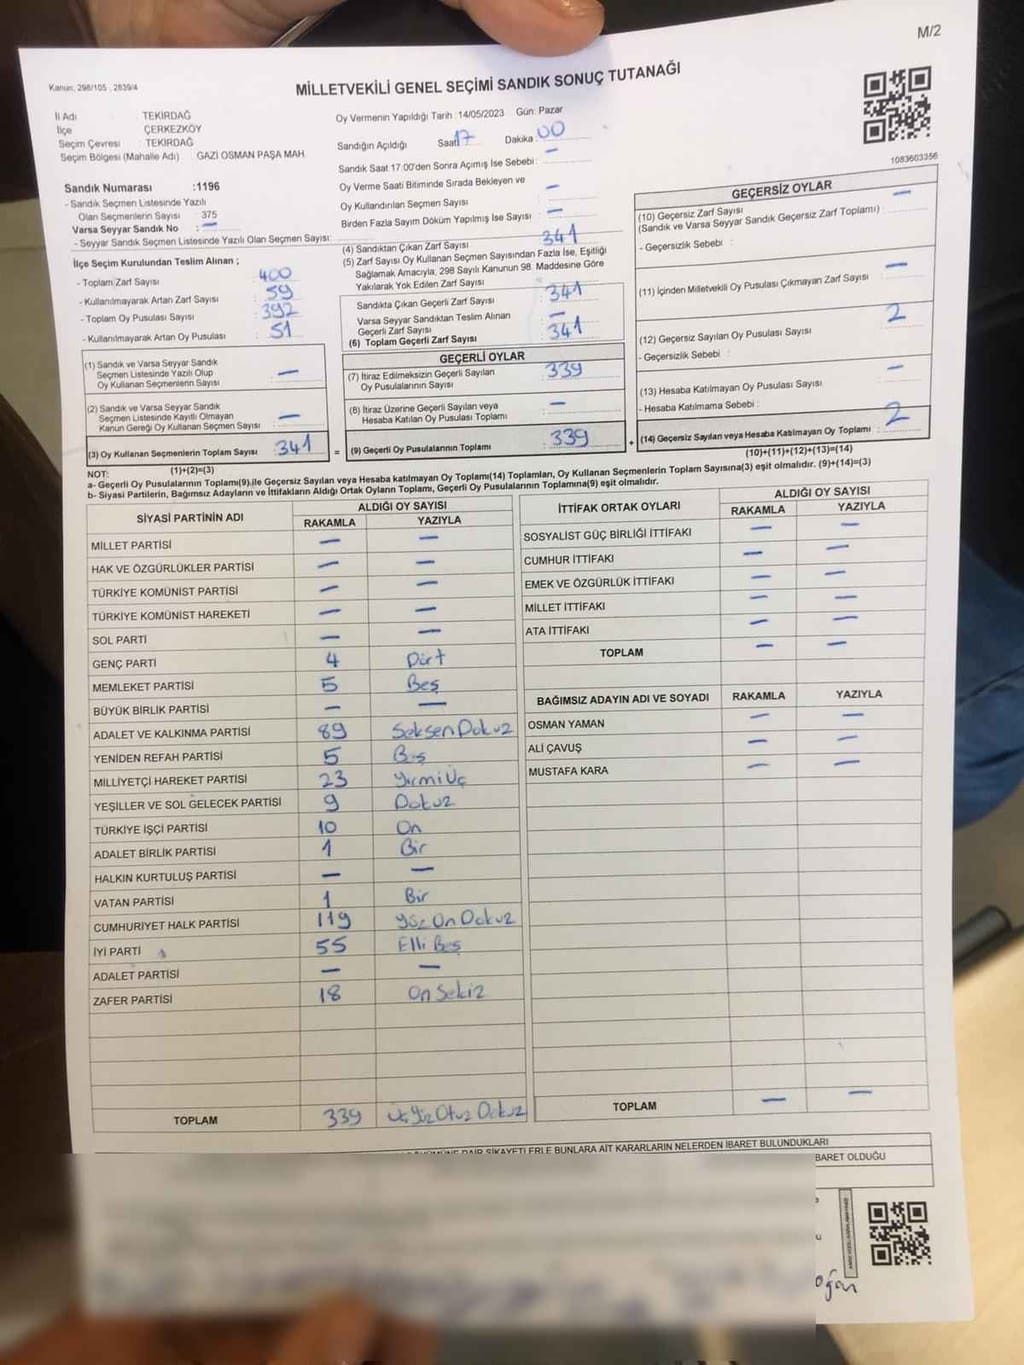 M/2
Kanun: 298/105 , 2839/4
MİLLETVEKİLİ GENEL SEÇİMİ SANDIK SONUÇ TUTANAĞI
İl Adı TEKİRDAĞ
İlçe ÇERKEZKÖY
Seçim Çevresi : TEKİRDAĞ
Seçim Bölgesi (Mahalle Adı) GAZİ OSMAN PAŞA MAH
Sandık Numarası :1196
- Sandık Seçmen Listesinde Yazılı
Olan Seçmenlerin Sayısı 375
Varsa Seyyar Sandık No : —
- Seyyar Sandık Seçmen Listesinde Yazılı Olan Seçmen Sayısı:
İlçe Seçim Kurulundan Teslim Alınan ;
- Toplam Zarf Sayısı : 400
- Kullanılmayarak Artan Zarf Sayısı : 59
- Toplam Oy Pusulası Sayısı : 392
- Kullanılmayarak Artan Oy Pusulası : 51
(1) Sandık ve Varsa Seyyar Sandık
Seçmen Listesinde Yazılı Olup
Oy Kullanan Seçmenlerin Sayısı : —
(2) Sandık ve Varsa Seyyar Sandık
Seçmen Listesinde Kayıtlı Olmayan
Kanun Gereği Oy Kullanan Seçmen Sayısı : —
(3) Oy Kullanan Seçmenlerin Toplam Sayısı : 341
(1)+(2)=(3)
Oy Vermenin Yapıldığı Tarih :14/05/2023 Gün: Pazar
Sandığın Açıldığı Saat: 17 Dakika : 00
Sandık Saat 17:00'den Sonra Açımış İse Sebebi: —
Oy Verme Saati Bitiminde Sırada Bekleyen ve
Oy Kullandırılan Seçmen Sayısı : —
Birden Fazla Sayım Döküm Yapılmış İse Sayısı : —
(4) Sandıktan Çıkan Zarf Sayısı : 341
(5) Zarf Sayısı Oy Kullanan Seçmen Sayısından Fazla İse, Eşitliği
Sağlamak Amacıyla, 298 Sayılı Kanunun 98. Maddesine Göre
Yakılarak Yok Edilen Zarf Sayısı :
Sandıkta Çıkan Geçerli Zarf Sayısı : 341
Varsa Seyyar Sandıktan Teslim Alınan
Geçerli Zarf Sayısı : —
(6) Toplam Geçerli Zarf Sayısı : 341
GEÇERLİ OYLAR
(7) İtiraz Edilmeksizin Geçerli Sayılan
Oy Pusulalarının Sayısı : 339
(8) İtiraz Üzerine Geçerli Sayılan veya
Hesaba Katılan Oy Pusulası Toplamı : —
= (9) Geçerli Oy Pusulalarının Toplamı : 339 +
1083603356
GEÇERSİZ OYLAR
(10) Geçersiz Zarf Sayısı
(Sandık ve Varsa Seyyar Sandık Geçersiz Zarf Toplamı) : —
- Geçersizlik Sebebi :
(11) İçinden Milletvekili Oy Pusulası Çıkmayan Zarf Sayısı : —
(12) Geçersiz Sayılan Oy Pusulası Sayısı : 2
- Geçersizlik Sebebi :
(13) Hesaba Katılmayan Oy Pusulası Sayısı : —
- Hesaba Katılmama Sebebi :
(14) Geçersiz Sayılan veya Hesaba Katılmayan Oy Toplamı : 2
(10)+(11)+(12)+(13)=(14)
NOT:
a- Geçerli Oy Pusulalarının Toplamı(9) ile Geçersiz Sayılan veya Hesaba katılmayan Oy Toplamı(14) Toplamları, Oy Kullanan Seçmenlerin Toplam Sayısına(3) eşit olmalıdır. (9)+(14)=(3)
b- Siyasi Partilerin, Bağımsız Adayların ve İttifakların Aldığı Ortak Oyların Toplamı, Geçerli Oy Pusulalarının Toplamına(9) eşit olmalıdır.
SİYASİ PARTİNİN ADI ALDIĞI OY SAYISI
RAKAMLA YAZIYLA
MİLLET PARTİSİ — —
HAK VE ÖZGÜRLÜKLER PARTİSİ — —
TÜRKİYE KOMÜNİST PARTİSİ — —
TÜRKİYE KOMÜNİST HAREKETİ — —
SOL PARTİ — —
GENÇ PARTİ 4 Dört
MEMLEKET PARTİSİ 5 Beş
BÜYÜK BİRLİK PARTİSİ — —
ADALET VE KALKINMA PARTİSİ 89 Seksen Dokuz
YENİDEN REFAH PARTİSİ 5 Beş
MİLLİYETÇİ HAREKET PARTİSİ 23 Yirmi Üç
YEŞİLLER VE SOL GELECEK PARTİSİ 9 Dokuz
TÜRKİYE İŞÇİ PARTİSİ 10 On
ADALET BİRLİK PARTİSİ 1 Bir
HALKIN KURTULUŞ PARTİSİ — —
VATAN PARTİSİ 1 Bir
CUMHURİYET HALK PARTİSİ 119 Yüz On Dokuz
İYİ PARTİ 55 Elli Beş
ADALET PARTİSİ — —
ZAFER PARTİSİ 18 On Sekiz
TOPLAM 339 Üç Yüz Otuz Dokuz
İTTİFAK ORTAK OYLARI ALDIĞI OY SAYISI
RAKAMLA YAZIYLA
SOSYALİST GÜÇ BİRLİĞİ İTTİFAKI — —
CUMHUR İTTİFAKI — —
EMEK VE ÖZGÜRLÜK İTTİFAKI — —
MİLLET İTTİFAKI — —
ATA İTTİFAKI — —
TOPLAM — —
BAĞIMSIZ ADAYIN ADI VE SOYADI RAKAMLA YAZIYLA
OSMAN YAMAN — —
ALİ ÇAVUŞ — —
MUSTAFA KARA — —
TOPLAM — —
DAİR ŞİKAYETLERLE BUNLARA AİT KARARLARIN NELERDEN İBARET BULUNDUKLARI
BARET OLDUĞU